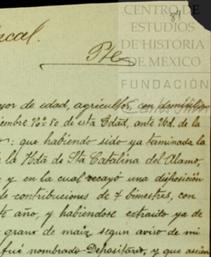 CENTRO DE
ESTUDIOS
DE HISTORIA
DE MEXICO
FUNDACIÓN
scal.
Pte
yor de edad, agricultor, con domicilio
iembre No. 80 de esta Cdad, ante Ud. de la
o: que habiendo sido ya taminada la
la Hda de Sta Catalina del Alamo,
y en la cual recayó una disposición
de contribuciones de 4 bimestres, con
te año, y habiéndose extraido ya de
grano de maiz segun aviso de mi
fué nombrado Depositario, y que asien